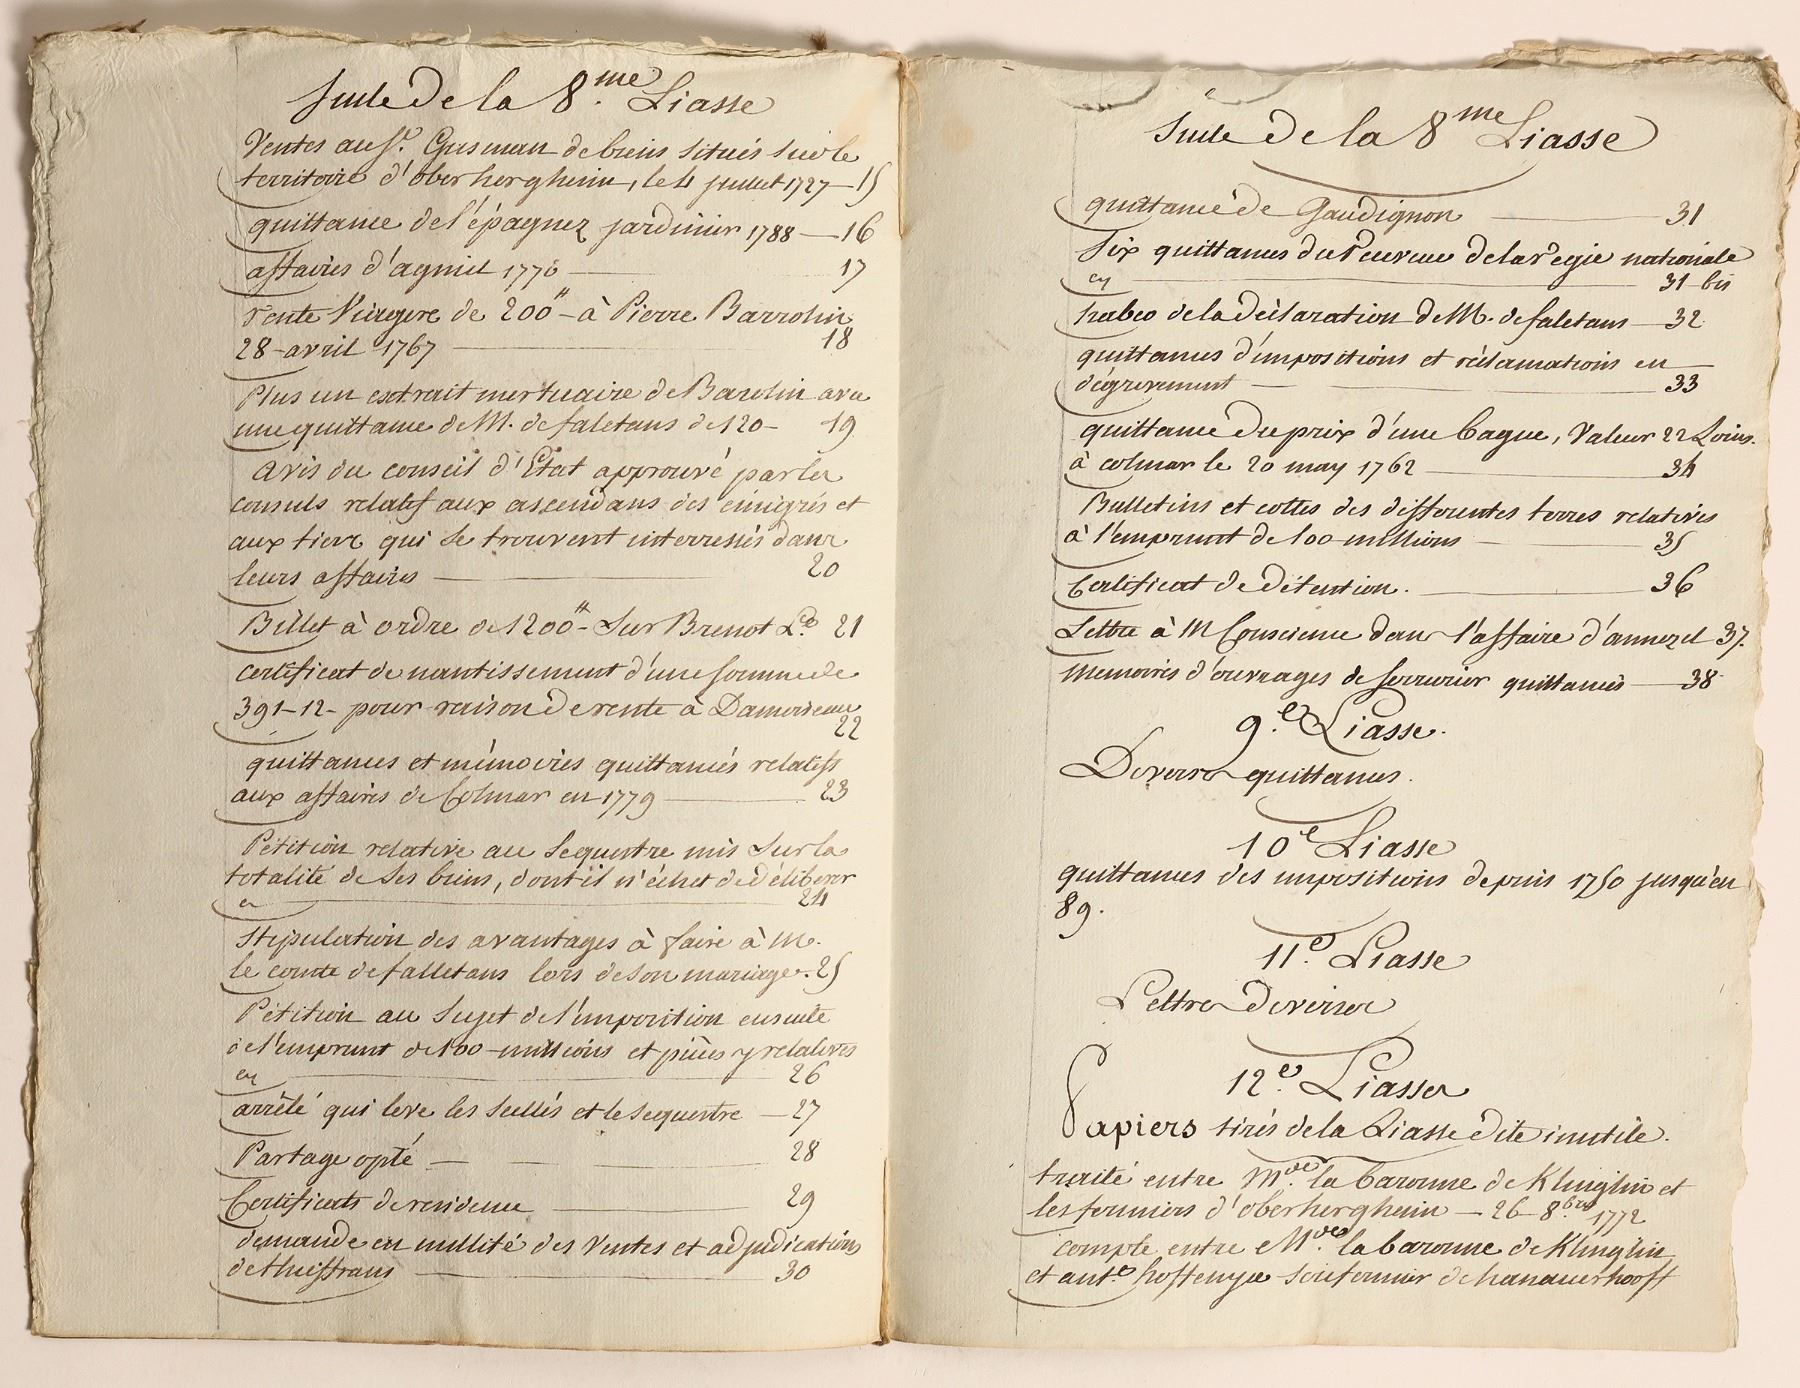 Suite de la 8.me Liasse
Ventes au Sr. Gusman de biens situés sur le
territoire d'oberhergheim, le 4 juillet 1727 — 15
quittance de l'épagnez jardinier 1788 — 16
affaires d'agmiel 1770 — 17
rente Viagere de 200# - à Pierre Barrolin
28 - avril 1767 — 18
Plus un extrait mortuaire de Barolin avec
une quittance de M. de faletans de 120 - 19
avis du conseil d'Etat approuvé par les
consuls relatif aux ascendans des émigrés et
aux tiers qui se trouvent interressés dans
leurs affaires — 20
Billet à ordre de 1200# - Sur Brenot L.é 21
certificat de nantissement d'une somme de
391-12- pour raison de rente à Damoiseau
22
quittances et mémoires quittancés relatifs
aux affaires de Colmar en 1779 — 23
Pétition relative au Sequestre mis Sur la
totalité de Ses biens, dont il n'échet de délibérer
cy — 24
Stipulation des avantages à faire à M.
le comte de falletans lors de son mariage. 25
Pétition au Sujet de l'imposition ensuite
de l'emprunt de 100 - millions et pièces y relatives
cy — 26
arrêté qui leve les Scellés et le Sequestre — 27
Partage opté — 28
Certificats de residence — 29
demande en nullité des Ventes et adjudications
de thieffrans — 30
Suite de la 8me Liasse
quittance de Gaudignon — 31
Six quittances du Receveur de la régie nationale
cy — 31 bis
habeo de la déclaration de M. de faletans — 32
quittances d'impositions et réclamations en
dégrevement — 33
quittance du prix d'une bague, Valeur 22 Louis.
à colmar le 20 may 1762 — 34
Bulletins et cottes des differentes terres relatives
à l'emprunt de 100 millions — 35
Certificat de détention. — 36
Lettre à M Conscience dans l'affaire d'annezel 37.
Memoires d'ouvrages de Serrurier quittancés — 38
9.e Liasse.
Diverses quittances.
10e Liasse
quittances des impositions depuis 1750 jusqu'en
89.
11.e Liasse
Lettres diverses
12.e Liasse
Papiers tirés de la Liasse dite inutile.
traité entre Mde. la baronne de Klinglin et
les fermiers d'oberhergheim — 26 8.bre 1772
compte entre Mde. la baronne de Klinglin
et ant.e hoffenyer Soufermier de hanauerhooff